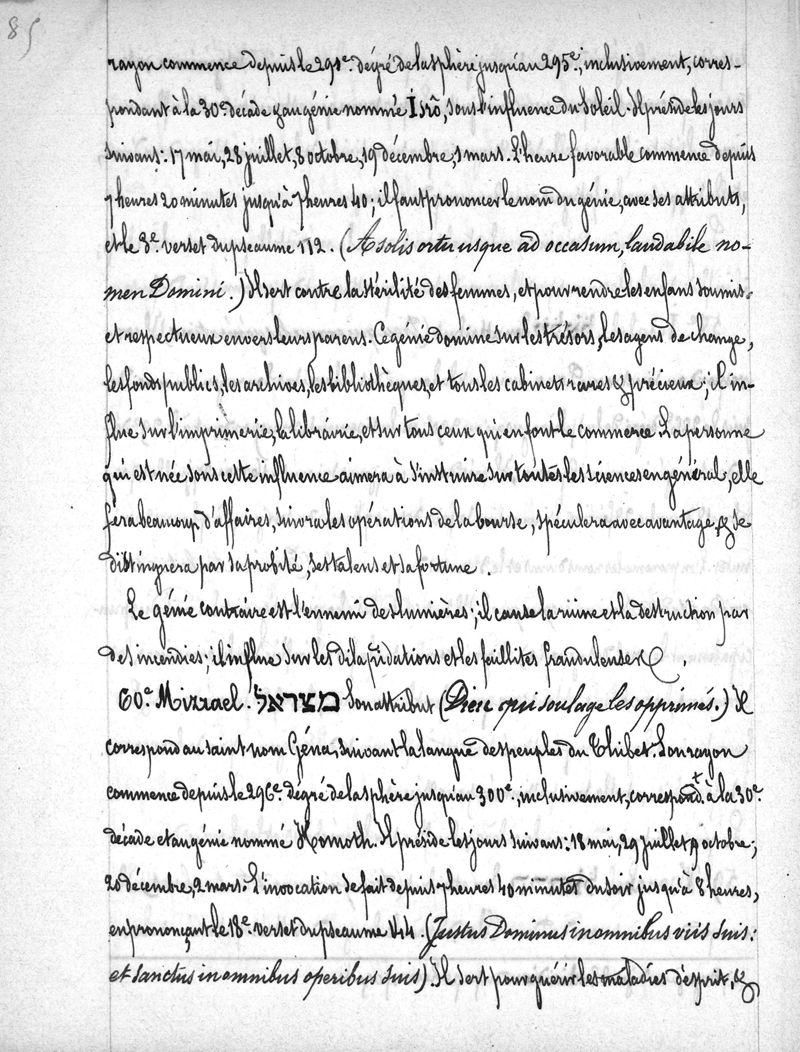 85
rayon commence depuis le 291e. dégré de la sphère jusqu'au 295e., inclusivement, corres-
pondant à la 30e décade & au génie nommé Isrô, sous l'influence du Soleil. Il préside les jours
suivans: 17 mai, 28 juillet, 8 octobre, 19 décembre, 1 mars. L'heure favorable commence depuis
7 heures 20 minutes jusqu'à 7 heures 40; il faut prononcer le nom du génie, avec ses attributs,
et le 3e. verset du pseaume 112. (A solis ortu usque ad occasum, laudabile no-
men Domini.) Il sert contre la stérilité des femmes, et pour rendre les enfans soumis
et respectueux envers leurs parens. Ce génie domine sur les trésors, les agens de change,
les fonds publics, les archives, les bibliothèques, et tous les cabinets rares & précieux; il in-
flue sur l'imprimerie, la librairie, et sur tous ceux qui en font le commerce. La personne
qui est née sous cette influence aimera à s'instruire sur toutes les sciences en général, elle
fera beaucoup d'affaires, suivra les opérations de la bourse, spéculera avec avantage, & se
distinguera par sa probité, ses talens et sa fortune.
Le génie contraire est l'ennemi des lumières; il cause la ruine et la destruction par
des incendies; il influe sur les dilapidations et les faillites frauduleuses.
60e. Mizrael. מצראל Son attribut (Dieu qui soulage les opprimés.) Il
correspond au saint nom Géna, suivant la langue des peuples du Thibet. Son rayon
commence depuis le 296e. dégré de la sphère jusqu'au 300e., inclusivement, correspondt. à la 30e.
décade et au génie nommé Homoth. Il préside les jours suivans: 18 mai, 29 juillet, 9 octobre;
20 décembre, 2 mars. L'invocation se fait depuis 7 heures 40 minutes du soir jusqu'à 8 heures,
en prononçant le 18e. verset du pseaume 144. (Justus Dominus in omnibus viis suis:
et sanctus in omnibus operibus suis). Il sert pour guérir les maladies d'esprit, &